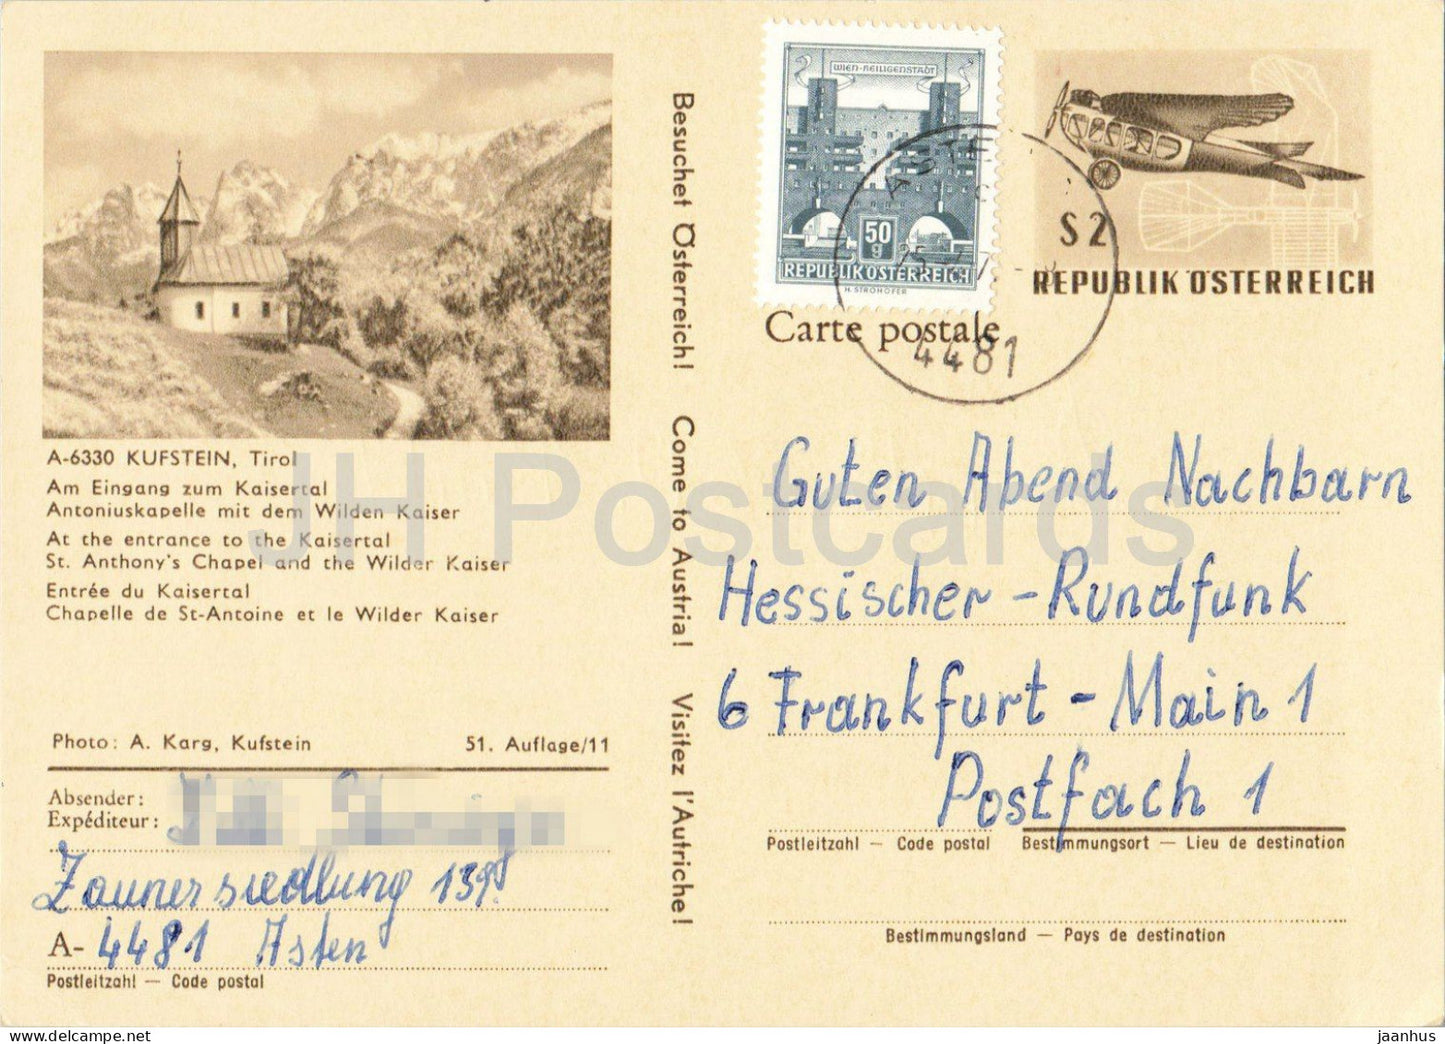 A-6330 KUFSTEIN, Tirol
Am Eingang zum Kaisertal
Antoniuskapelle mit dem Wilden Kaiser
At the entrance to the Kaisertal
St. Anthony's Chapel and the Wilder Kaiser
Entrée du Kaisertal
Chapelle de St-Antoine et le Wilder Kaiser
Photo: A. Karg, Kufstein 51. Auflage/11
Absender:
Expéditeur:
Zaunersiedlung
A-4481 Asten
Postleitzahl — Code postal
Besuchet Österreich! Come to Austria! Visitez l'Autriche!
WIEN-HEILIGENSTADT
50
g
REPUBLIK ÖSTERREICH
H. STROHOFER
ASTEN
4481
S 2
REPUBLIK ÖSTERREICH
Carte postale
Guten Abend Nachbarn
Hessischer-Rundfunk
6 Frankfurt-Main 1
Postfach 1
Postleitzahl — Code postal Bestimmungsort — Lieu de destination
Bestimmungsland — Pays de destination
JH Postcards
jaanhus - https://www.delcampe.net